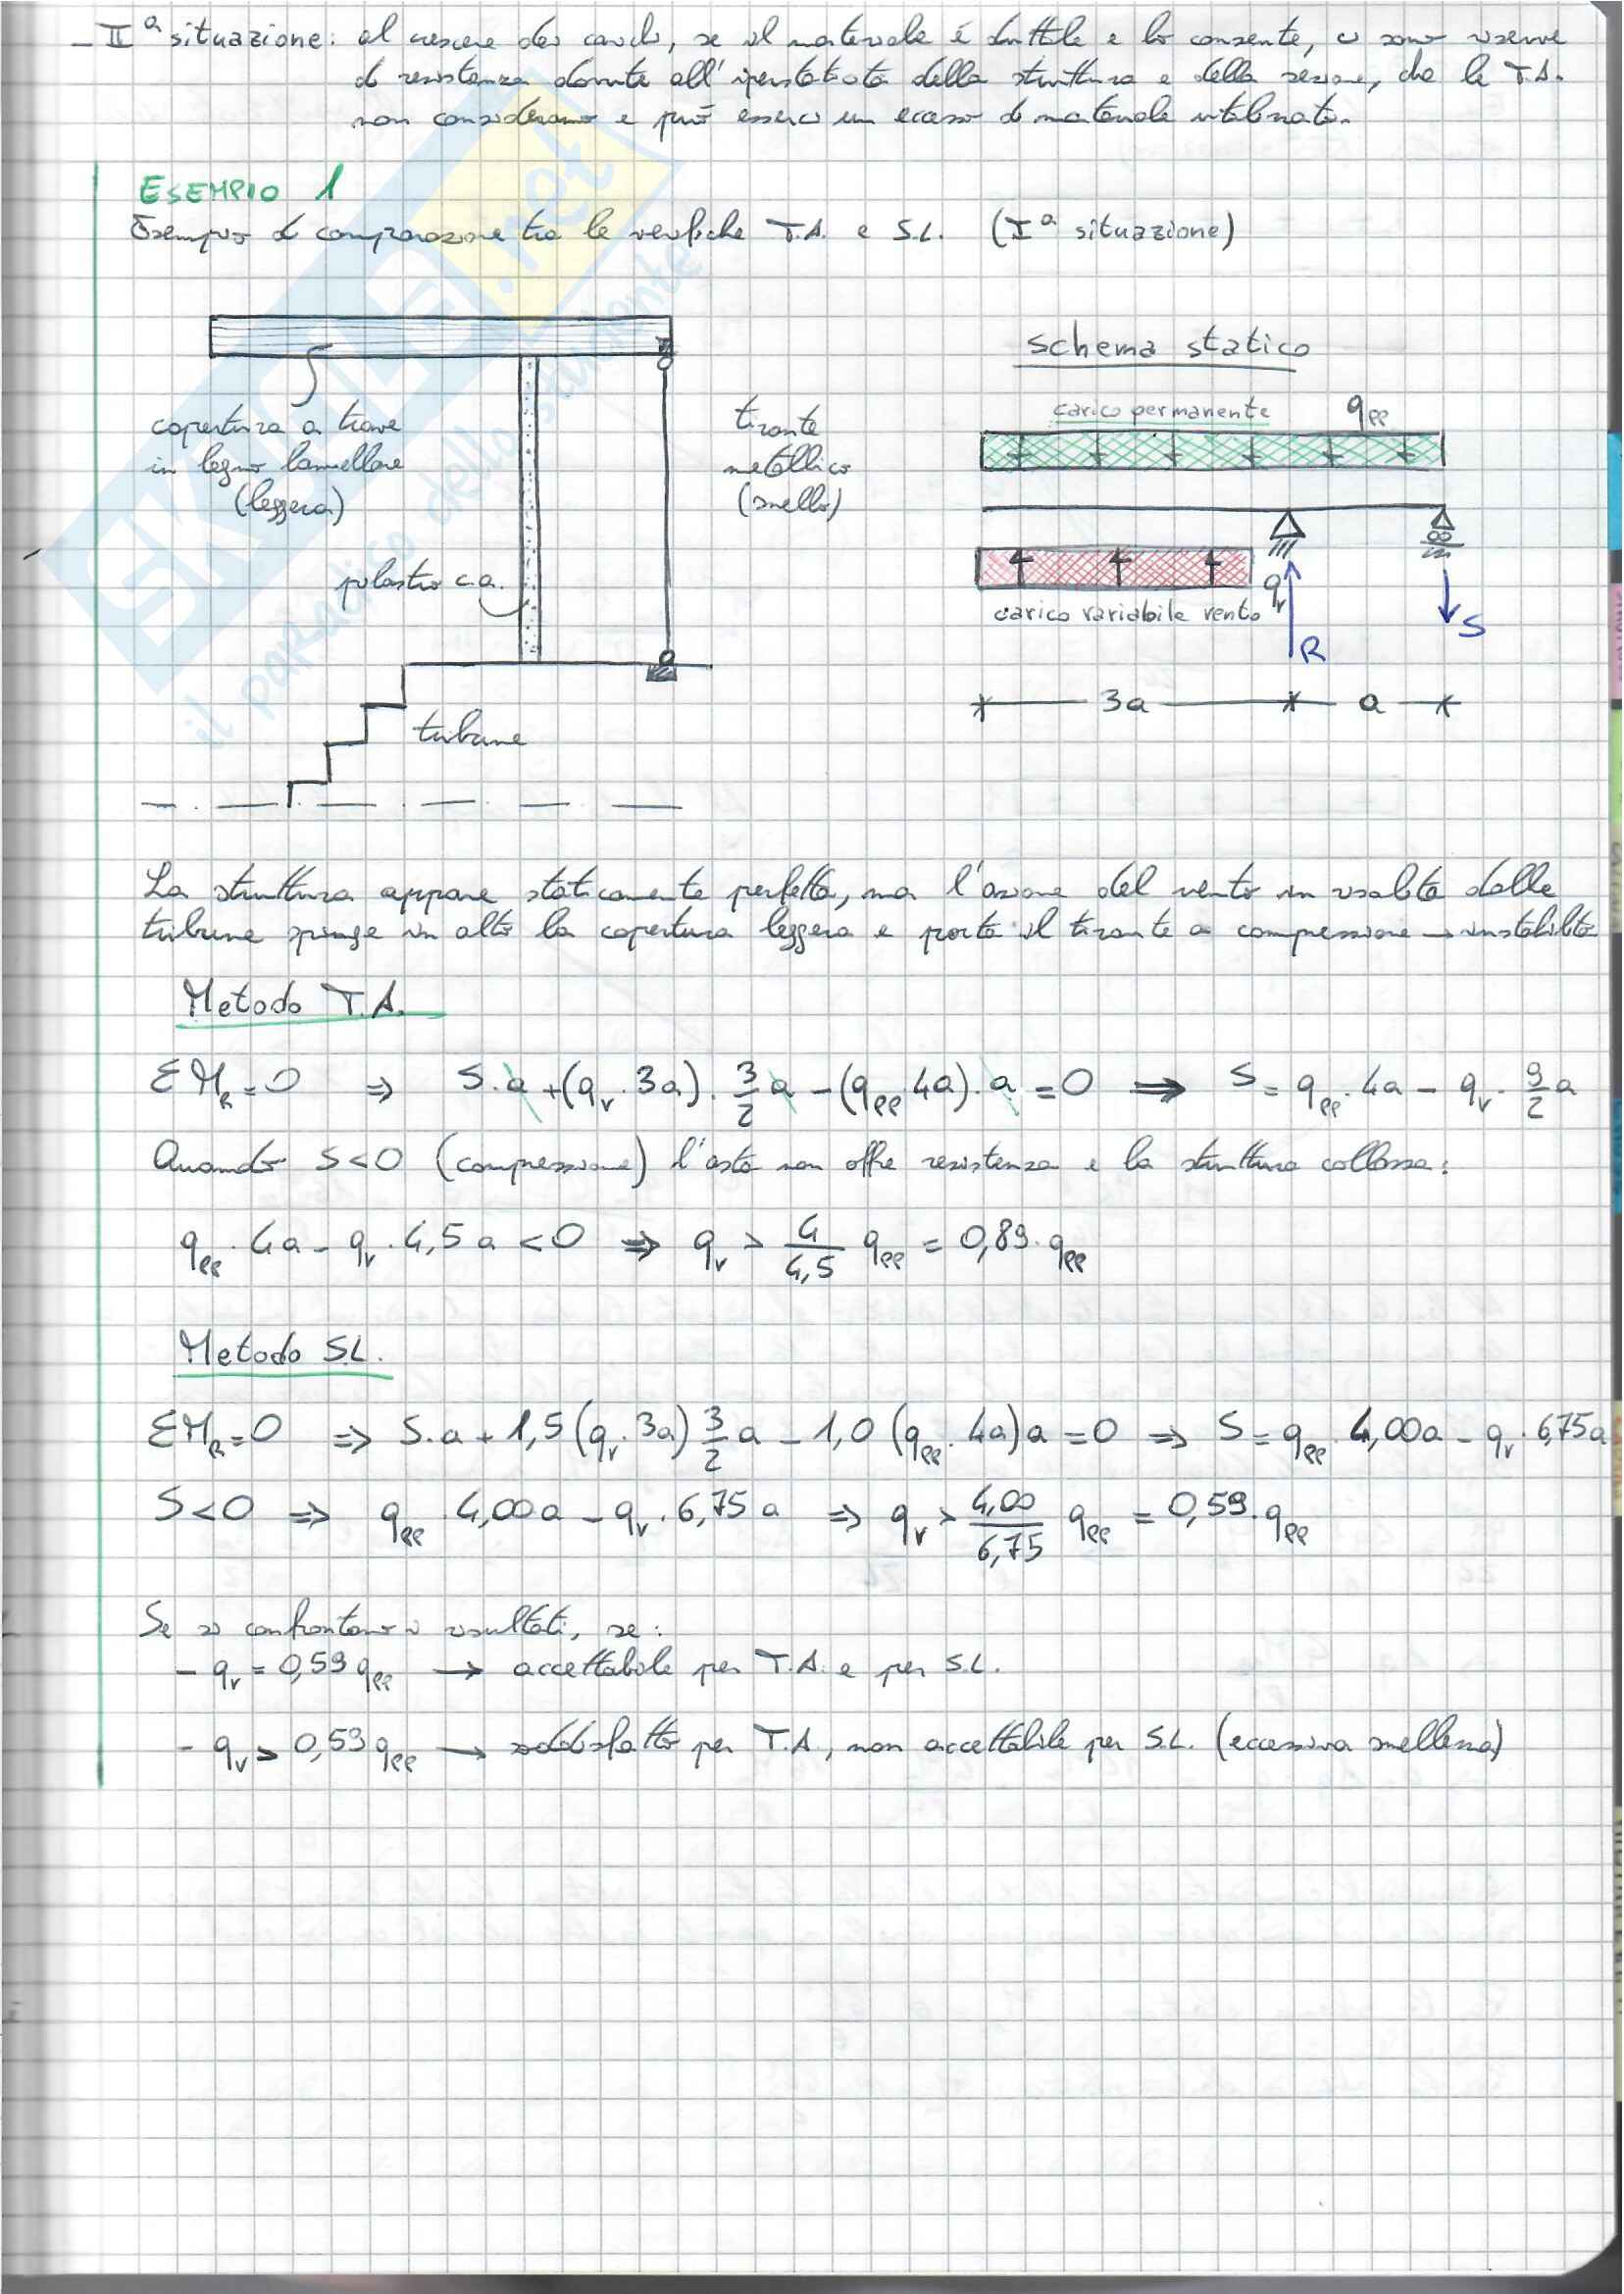 - IIª situazione: al crescere dei carichi, se il materiale è duttile e lo consente, ci sono riserve
di resistenza dovute all'iperstaticità della struttura e della sezione, che le T.A.
non considerano e può esserci un eccesso di materiale utilizzato.
ESEMPIO 1
Esempio di comparazione tra le verifiche T.A. e S.L. (Iª situazione)
schema statico
carico permanente qpp
copertura a trave
in legno lamellare
(leggera)
tirante
metallico
(snello)
pilastro c.a.
qv
carico variabile vento
R
S
3a a
tribune
La struttura appare staticamente perfetta, ma l'azione del vento in risalita dalle
tribune spinge in alto la copertura leggera e porta il tirante a compressione → instabilità
Metodo T.A.
ΣM_R=0 ⇒ S·a+(qv·3a)·3/2a-(qpp·4a)·a=0 ⇒ S=qpp·4a-qv·9/2a
Quando S<0 (compressione) l'asta non offre resistenza e la struttura collassa:
qpp·4a-qv·4,5a<0 ⇒ qv>4/4,5 qpp=0,89·qpp
Metodo S.L.
ΣM_R=0 ⇒ S·a+1,5(qv·3a)3/2a-1,0(qpp·4a)a=0 ⇒ S=qpp·4,00a-qv·6,75a
S<0 ⇒ qpp·4,00a-qv·6,75a ⇒ qv>4,00/6,75 qpp=0,59·qpp
Se si confrontano i risultati, se:
- qv=0,59qpp → accettabile per T.A. e per S.L.
- qv>0,59qpp → soddisfatto per T.A., non accettabile per S.L. (eccessiva snellezza)
SKUOLA.net
il paradiso dello studente